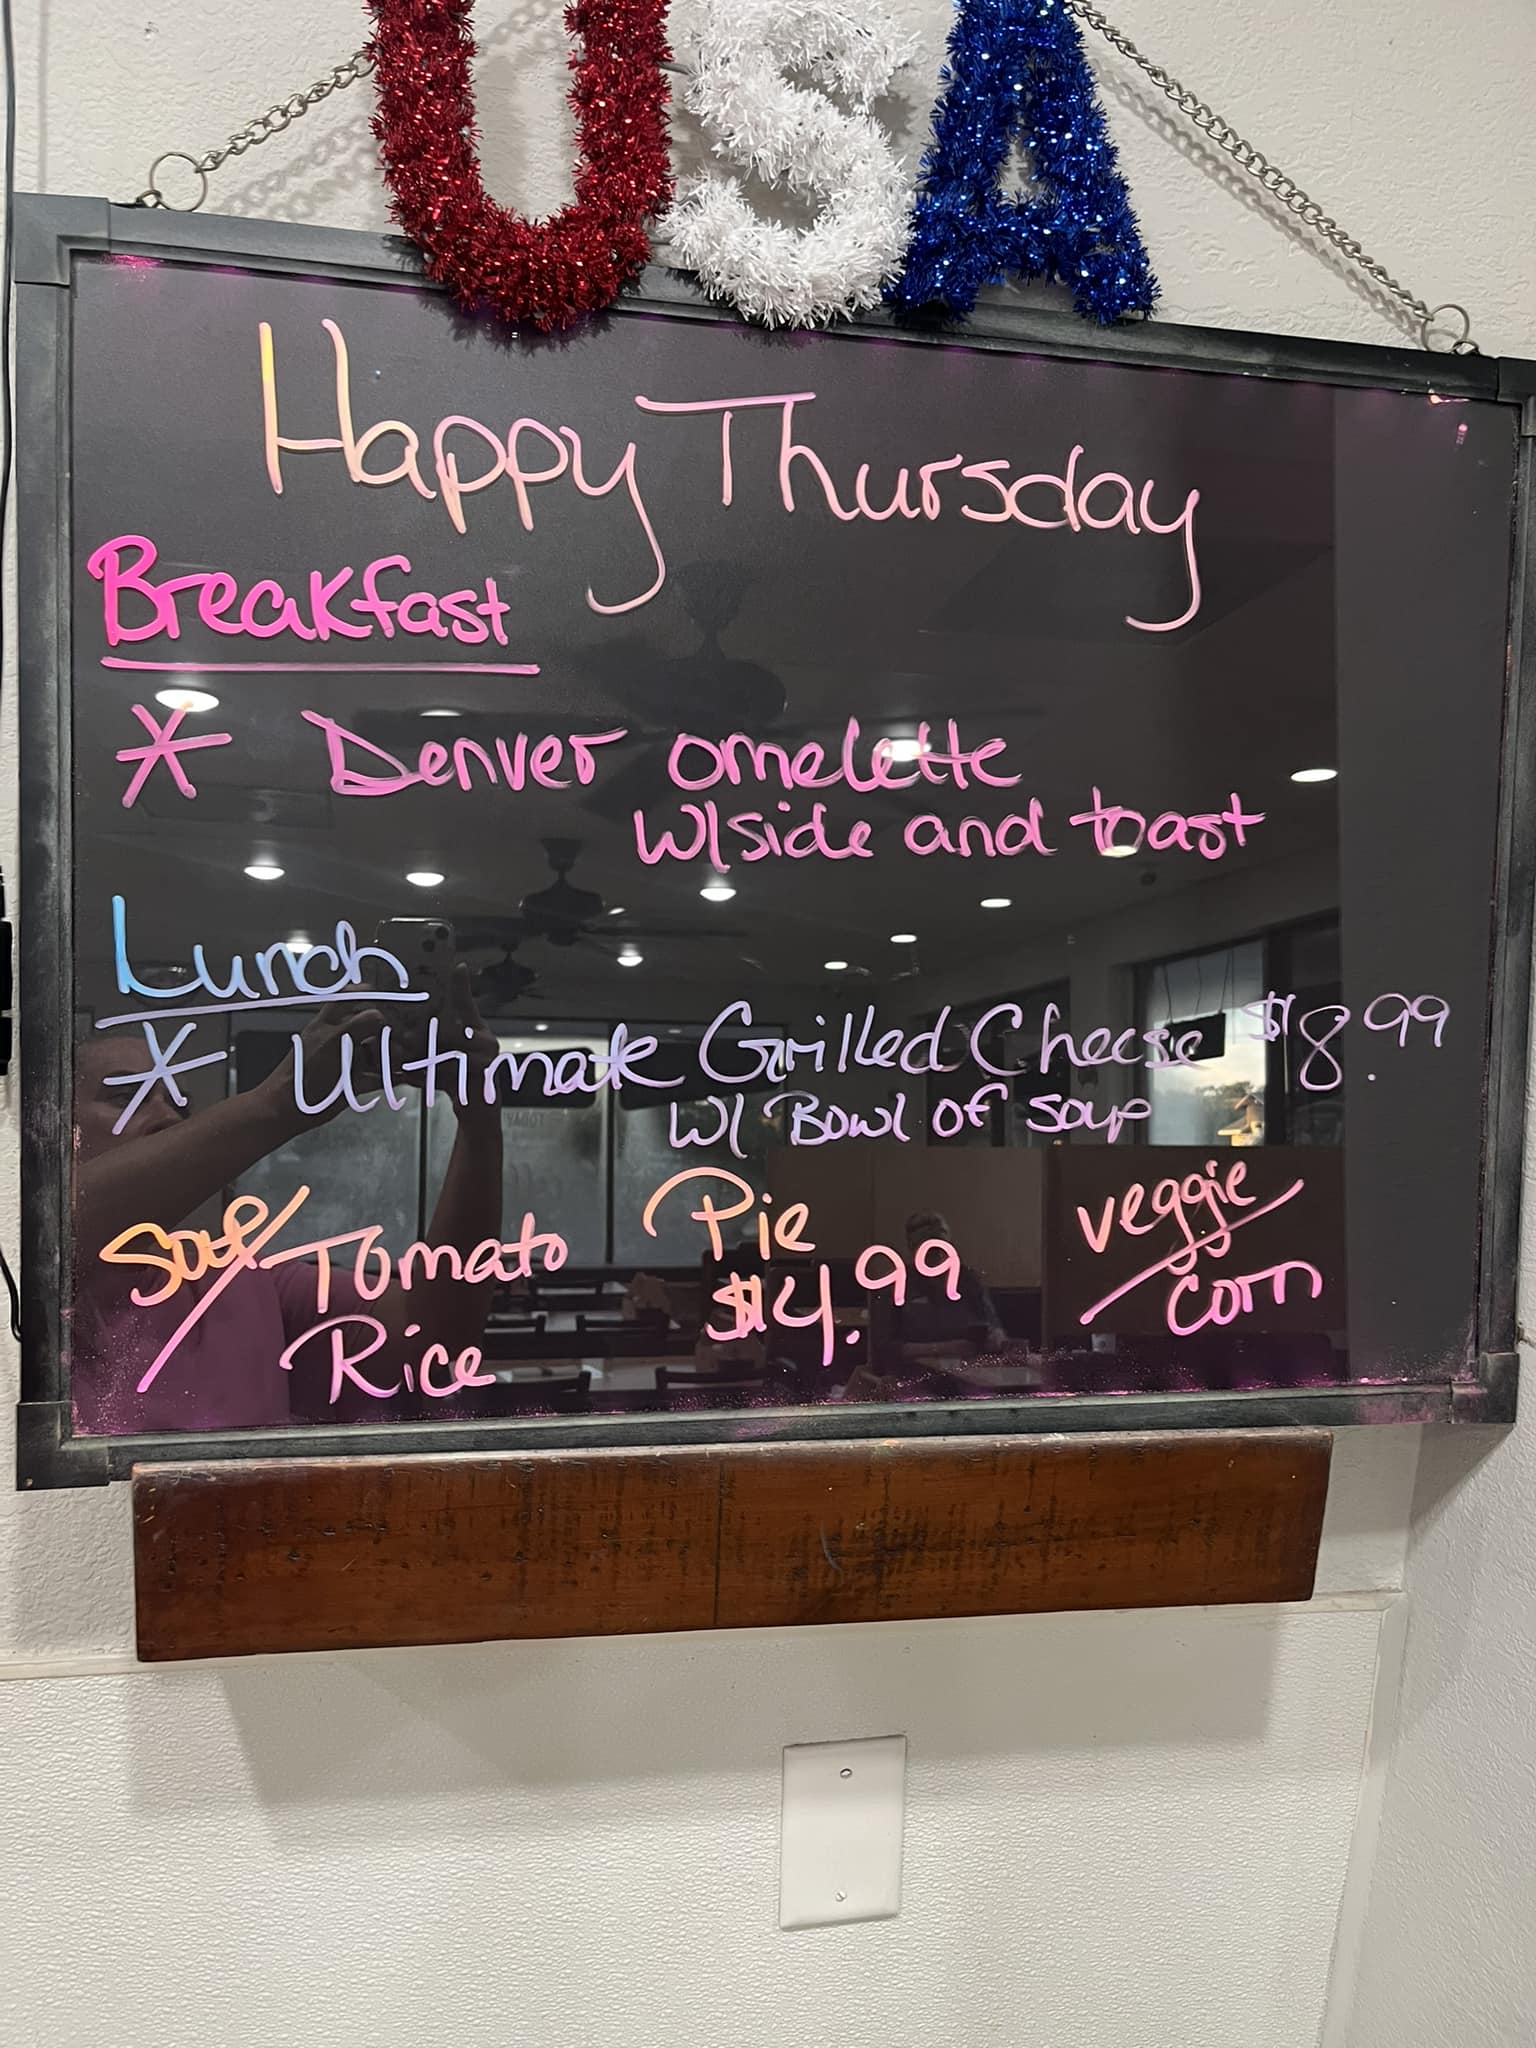 USA
Happy Thursday
Breakfast
* Denver omelette
w/side and toast
Lunch
* Ultimate Grilled Cheese $8.99
w/ Bowl of soup
Soup/ Tomato
Rice
Pie
$4.99
veggie/
corn
TODAY